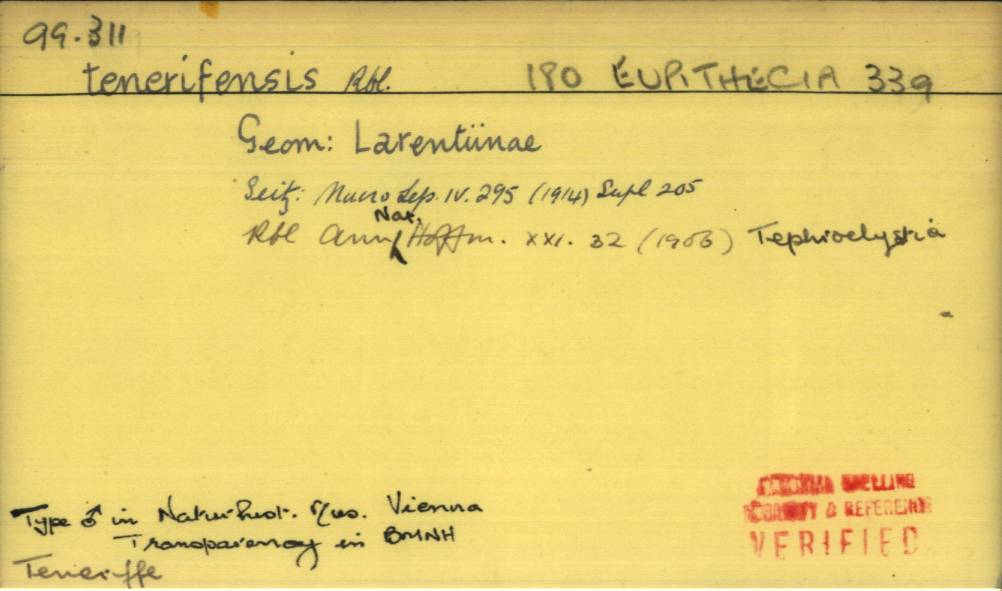 99.311
tenerifensis Rbl. 190 EUPITHECIA 339
Geom: Larentiinae
Seitz: Macro Lep. IV. 295 (1914) Supl 205
Rbl Ann Nat. Hoffm. XXI. 32 (1906) Tephroclystia
Type ♂ in Natur-hist. Mus. Vienna
Transparency in BMNH
Teneriffe
SPELLING
& REFERENCE
VERIFIED